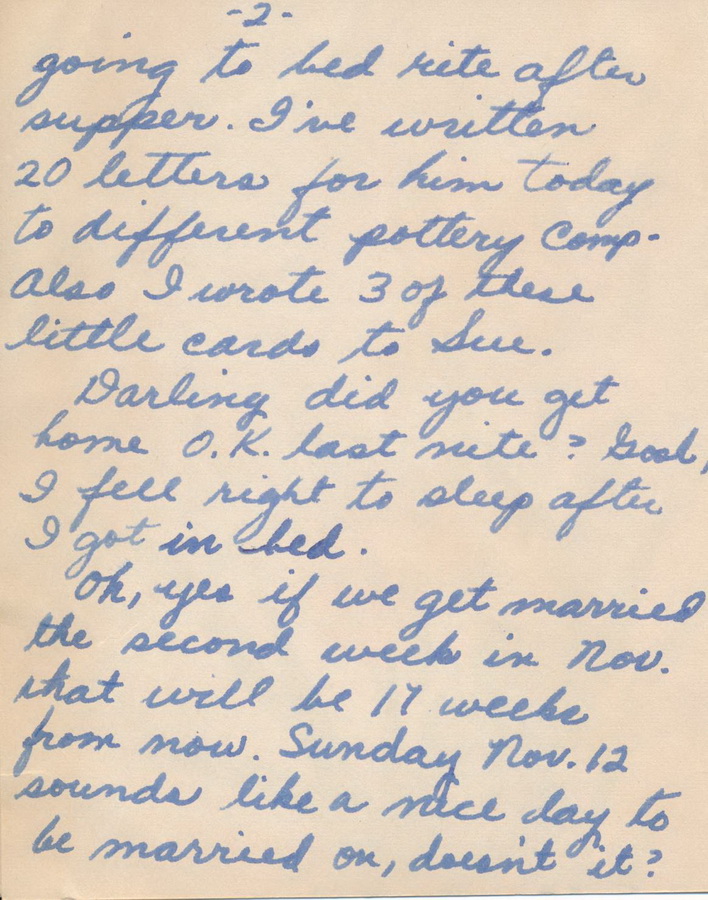 -2-
going to bed rite after
supper. I've written
20 letters for him today
to different pottery Comp.
Also I wrote 3 of these
little cards to Sue.
Darling did you get
home O.K. last nite? Gosh,
I fell right to sleep after
I got in bed.
Oh, yes if we get married
the second week in Nov.
that will be 17 weeks
from now. Sunday Nov. 12
sounds like a nice day to
be married on, doesn't it?